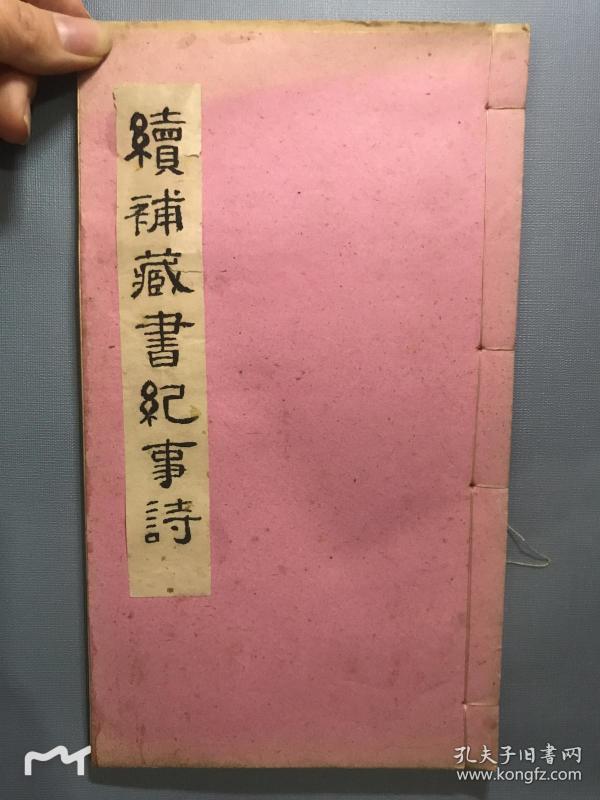 續補藏書紀事詩
孔夫子旧書网
www.kongfz.com